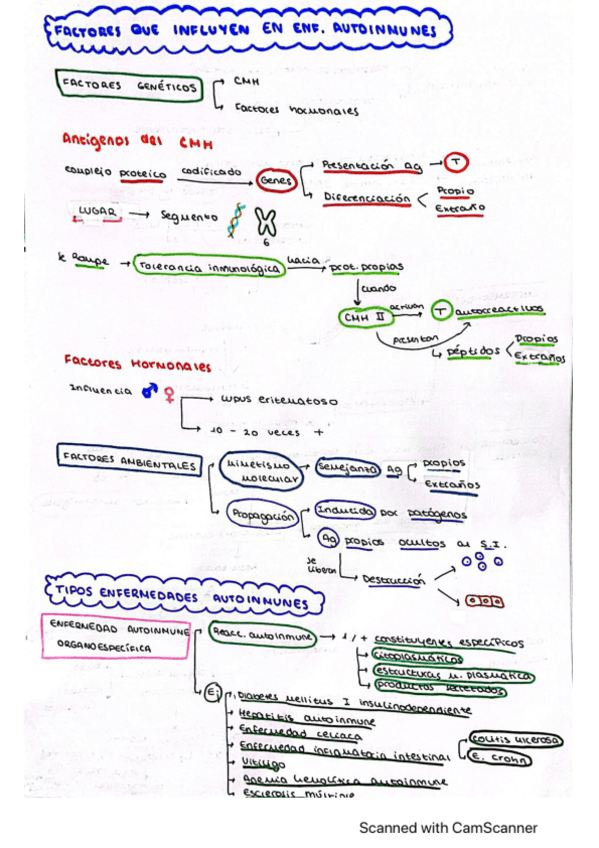 FACTORES QUE INFLUYEN EN ENF. AUTOINMUNES
FACTORES GENÉTICOS
CMH
Factores hormonales
Antígenos del CMH
complejo proteico codificado Genes
Presentación Ag → T
Diferenciación < Propio
Extraño
LUGAR → Segmento
6
Rompe → Tolerancia inmunológica hacia prot. propias
cuando
CMH II activan T autorreactivos
presentan
péptidos < Propios
Extraños
Factores Hormonales
Influencia ♂ ♀
lupus eritematoso
10 - 20 veces +
FACTORES AMBIENTALES
Mimetismo molecular → Semejanza Ag
propios
extraños
Propagación
Inducida por patógenos
Ag propios ocultos al S.I.
se liberan
Destrucción
TIPOS ENFERMEDADES AUTOINMUNES
ENFERMEDAD AUTOINMUNE
ORGANOESPECÍFICA
Reacc. autoinmune → 1/+ constituyentes específicos
citoplasmáticos
estructuras m. plasmática
productos secretados
Ej
Diabetes mellitus I insulinodependiente
Hepatitis autoinmune
Enfermedad celiaca
Enfermedad inflamatoria intestinal
colitis ulcerosa
E. crohn
Vitíligo
Anemia hemolítica autoinmune
Esclerosis múltiple
Scanned with CamScanner